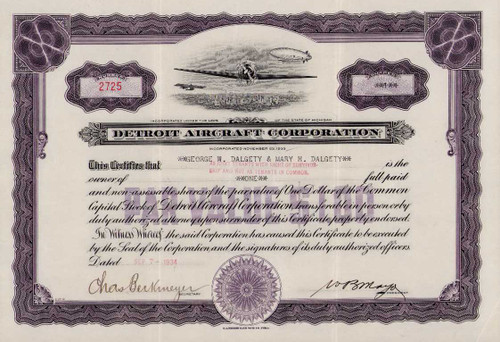 2725
**1**
INCORPORATED UNDER THE LAWS OF THE STATE OF MICHIGAN
DETROIT AIRCRAFT CORPORATION
This Certifies that **GEORGE N. DALGETY & MARY M. DALGETY** is the
owner of **ONE** full paid
and non-assessable shares of the par value of One Dollar of the Common
Capital Stock of Detroit Aircraft Corporation transferable in person or by
duly authorized attorney upon surrender of this Certificate properly endorsed.
In Witness Whereof the said Corporation has caused this Certificate to be executed
by the Seal of the Corporation and the signatures of its duly authorized officers.
Dated 1934
Chas Berkmeyer
SECRETARY